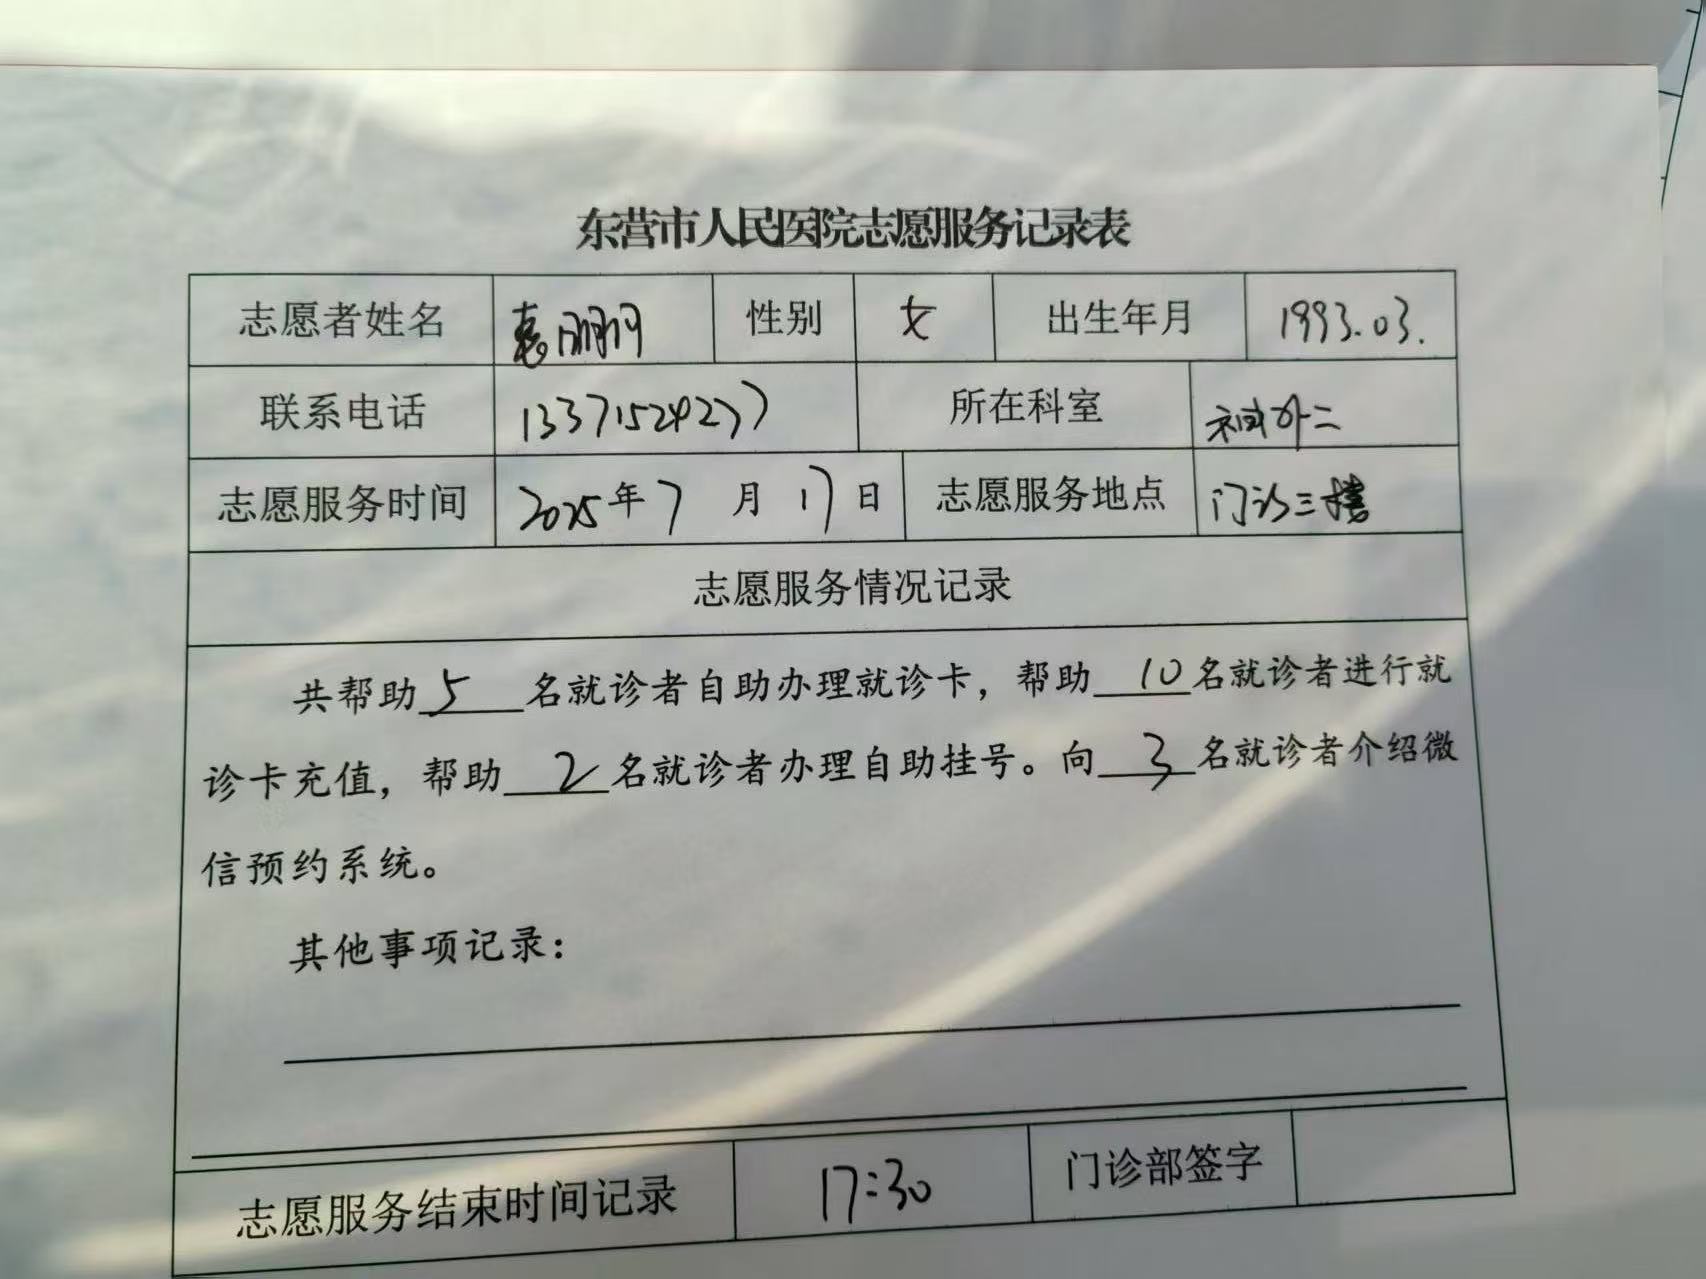 东营市人民医院志愿服务记录表
志愿者姓名 性别 女 出生年月 1993.03.
联系电话 13371524277 所在科室 神外二
志愿服务时间 2025年7月17日 志愿服务地点 门诊三楼
志愿服务情况记录
共帮助5名就诊者自助办理就诊卡，帮助10名就诊者进行就
诊卡充值，帮助2名就诊者办理自助挂号。向3名就诊者介绍微
信预约系统。
其他事项记录：
志愿服务结束时间记录 17:30 门诊部签字